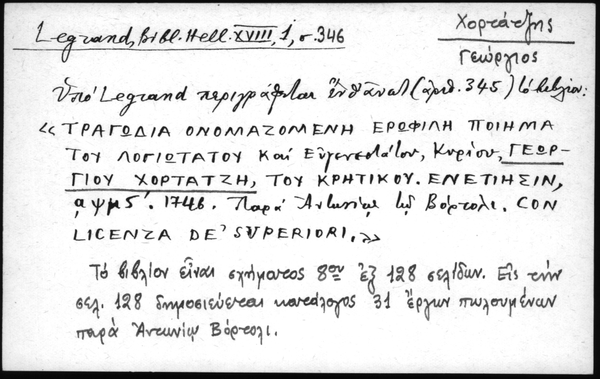 Legrand, Bibl. Hell. XVIII, 1, σ. 346
Χορτάτζης
Γεώργιος
Ὑπό Legrand περιγράφεται ἐνθάνατ (ἀριθ. 345) τό βιβλίον:
« ΤΡΑΓΩΔΙΑ ΟΝΟΜΑΖΟΜΕΝΗ ΕΡΩΦΙΛΗ ΠΟΙΗΜΑ
ΤΟΥ ΛΟΓΙΩΤΑΤΟΥ καί Εὐγενεστάτου, Κυρίου, ΓΕΩΡ-
ΓΙΟΥ ΧΟΡΤΑΤΖΗ, ΤΟΥ ΚΡΗΤΙΚΟΥ. ΕΝΕΤΙΗΣΙΝ,
αψμς΄. 1746. Παρά Ἀντωνίῳ τῷ Βόρτολι. CON
LICENZA DE' SUPERIORI. »
Τό βιβλίον εἶναι σχήματος 8ου ἐξ 128 σελίδων. Εἰς τήν
σελ. 128 δημοσιεύεται κατάλογος 31 ἔργων πωλουμένων
παρά Ἀντωνίῳ Βόρτολι.